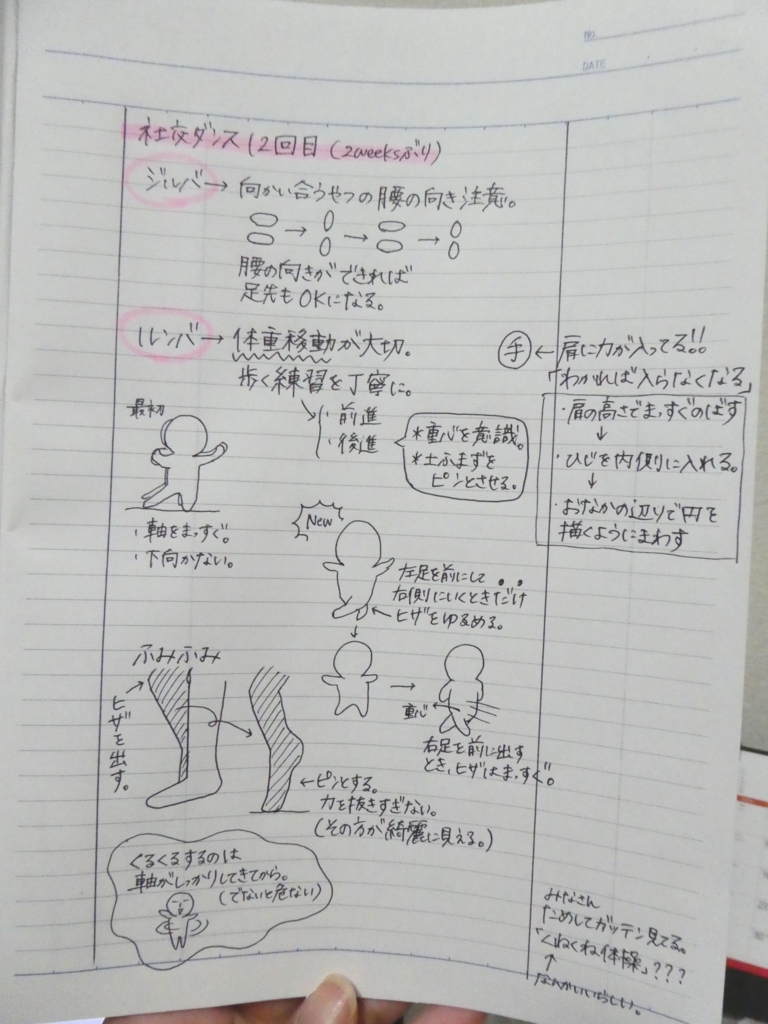 No.
DATE
社交ダンス12回目(2weeksぶり)
ジルバ→向かい合うやつの腰の向き注意。
→ → →
腰の向きができれば
足先もOKになる。
ルンバ→体重移動が大切。
歩く練習を丁寧に。
・前進
・後進
*重心を意識。
*土ふまずを
ピンとさせる。
手←肩に力が入ってる!!
「わかれば入らなくなる」
・肩の高さでまっすぐのばす
↓
・ひじを内側に入れる。
↓
・おなかの辺りで円を
描くようにまわす
最初
・軸をまっすぐ。
・下向かない。
New
左足を前にして
右側にいくときだけ
←ヒザをゆるめる。
↓
→
重心
右足を前に出す
とき、ヒザはまっすぐ。
ふみふみ
ヒザを出す。
←ピンとする。
力を抜きすぎない。
(その方が綺麗に見える。)
くるくるするのは
軸がしっかりしてきてから。
(でないと危ない)
みなさん
ためしてガッテン見てる。
「くねくね体操」???
↑
なんかいいらしい。